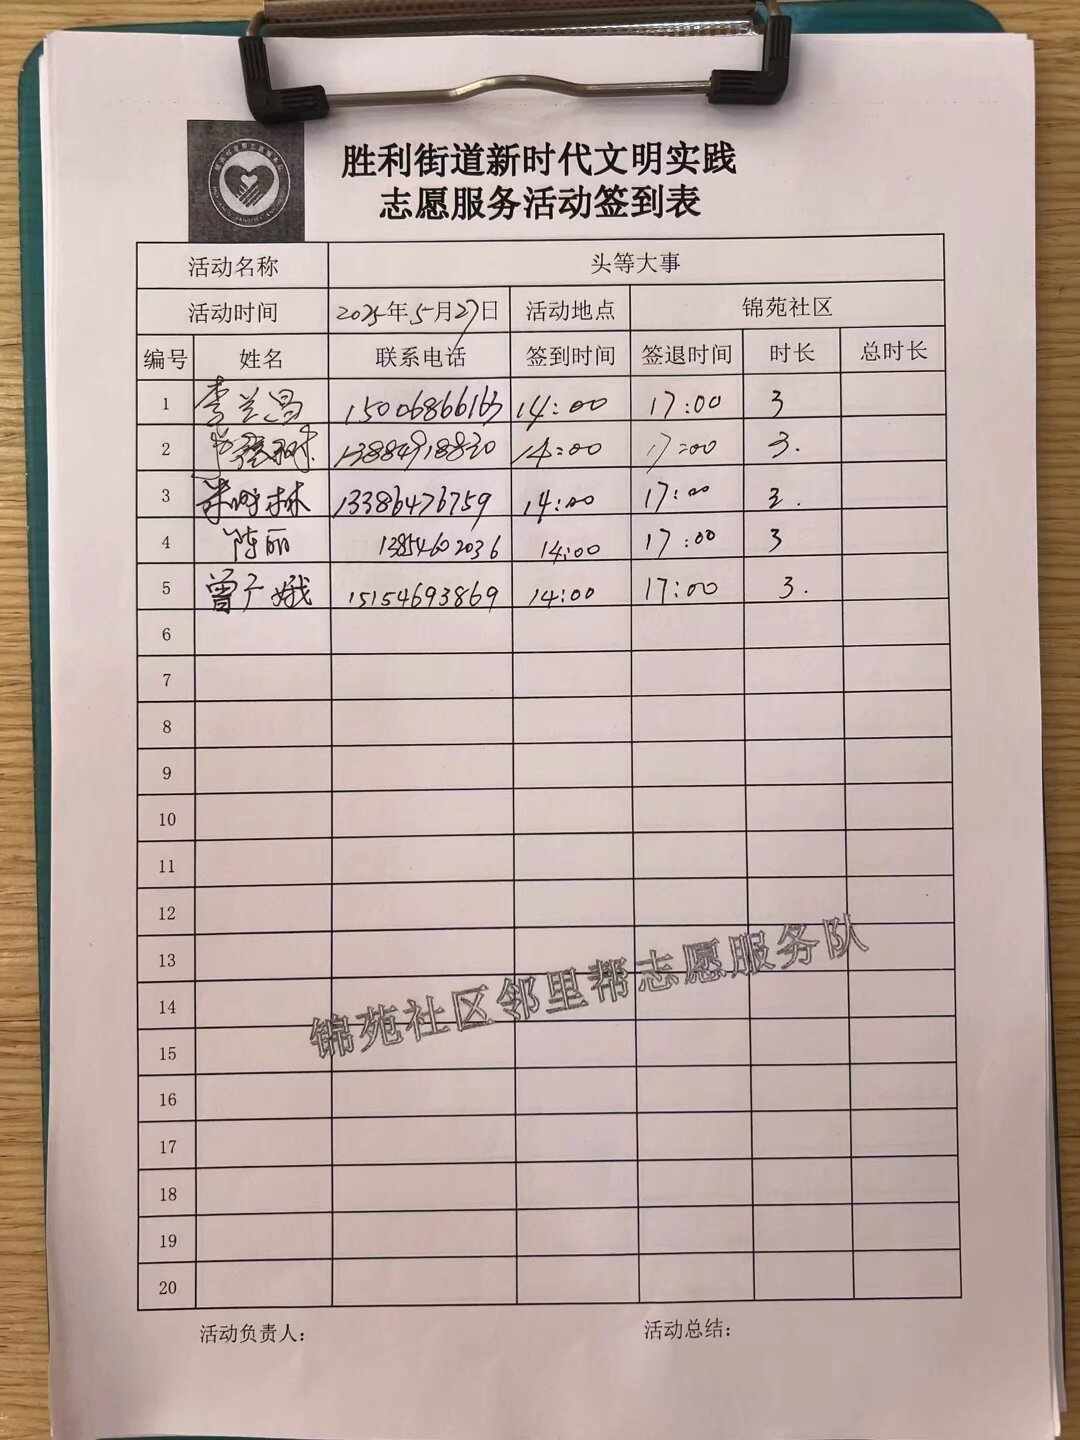 胜利街道新时代文明实践
志愿服务活动签到表
活动名称 头等大事
活动时间 2025年5月27日 活动地点 锦苑社区
编号 姓名 联系电话 签到时间 签退时间 时长 总时长
1 李兰昌 15006866163 14:00 17:00 3
2 13884918820 14:00 17:00 3.
3 林 13386476759 14:00 17:00 3.
4 陈丽 13854602036 14:00 17:00 3
5 曾广娥 15154693869 14:00 17:00 3.
6
7
8
9
10
11
12
13
14
15
16
17
18
19
20
锦苑社区邻里帮志愿服务队
活动负责人: 活动总结: